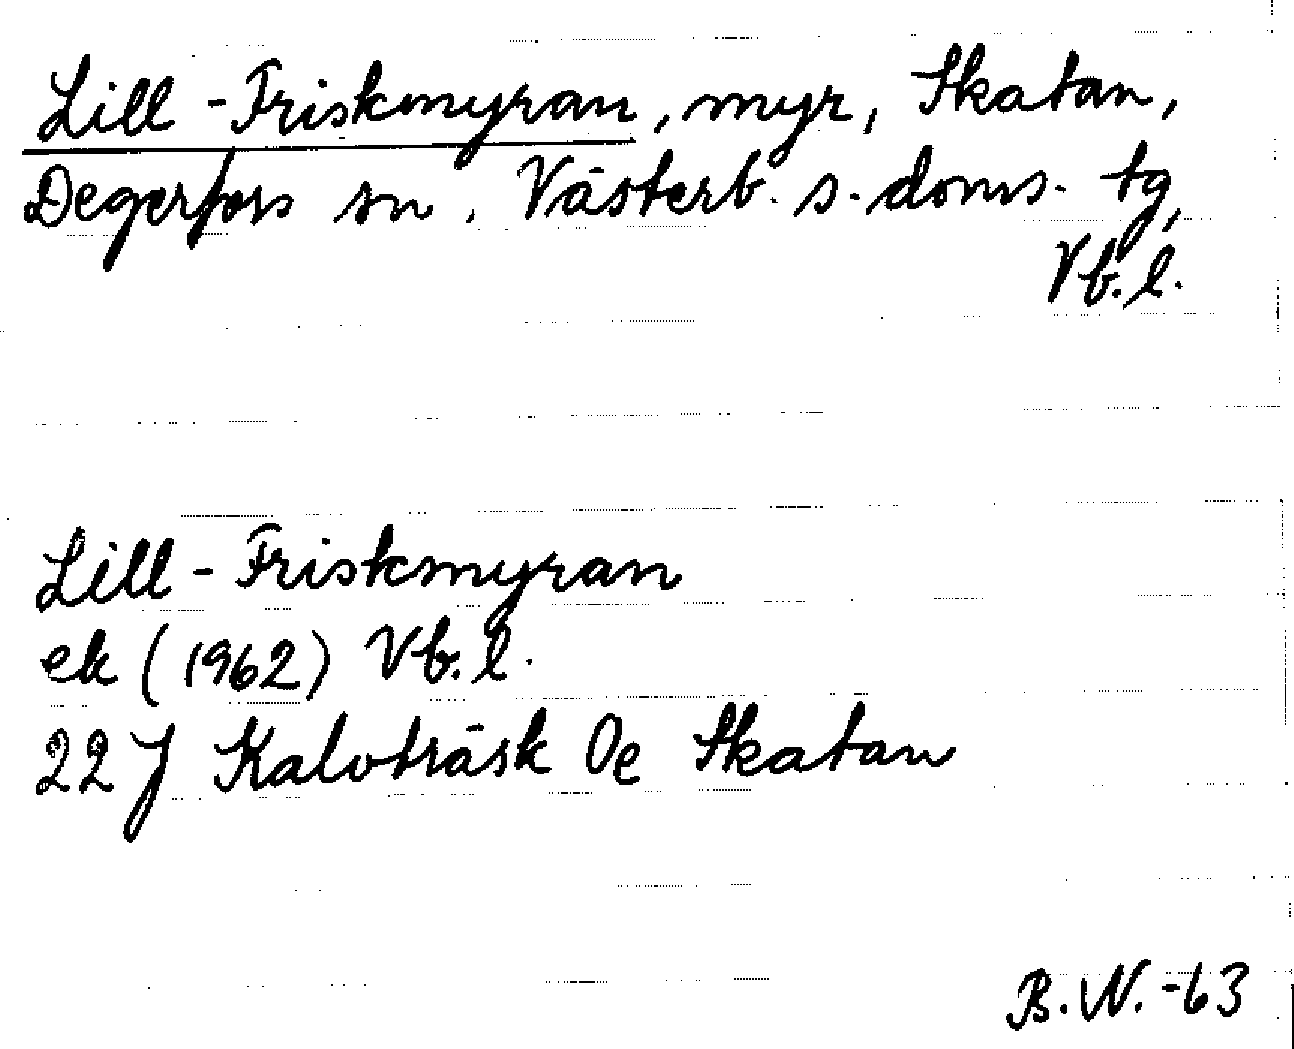 Lill-Friskmyran, myr, Skatan,
Degerfors sn, Västerb. s. doms. tg,
Vb. l.
Lill-Friskmyran
ek (1962) Vb. l.
22J Kalvträsk 0e Skatan
B.N.-63